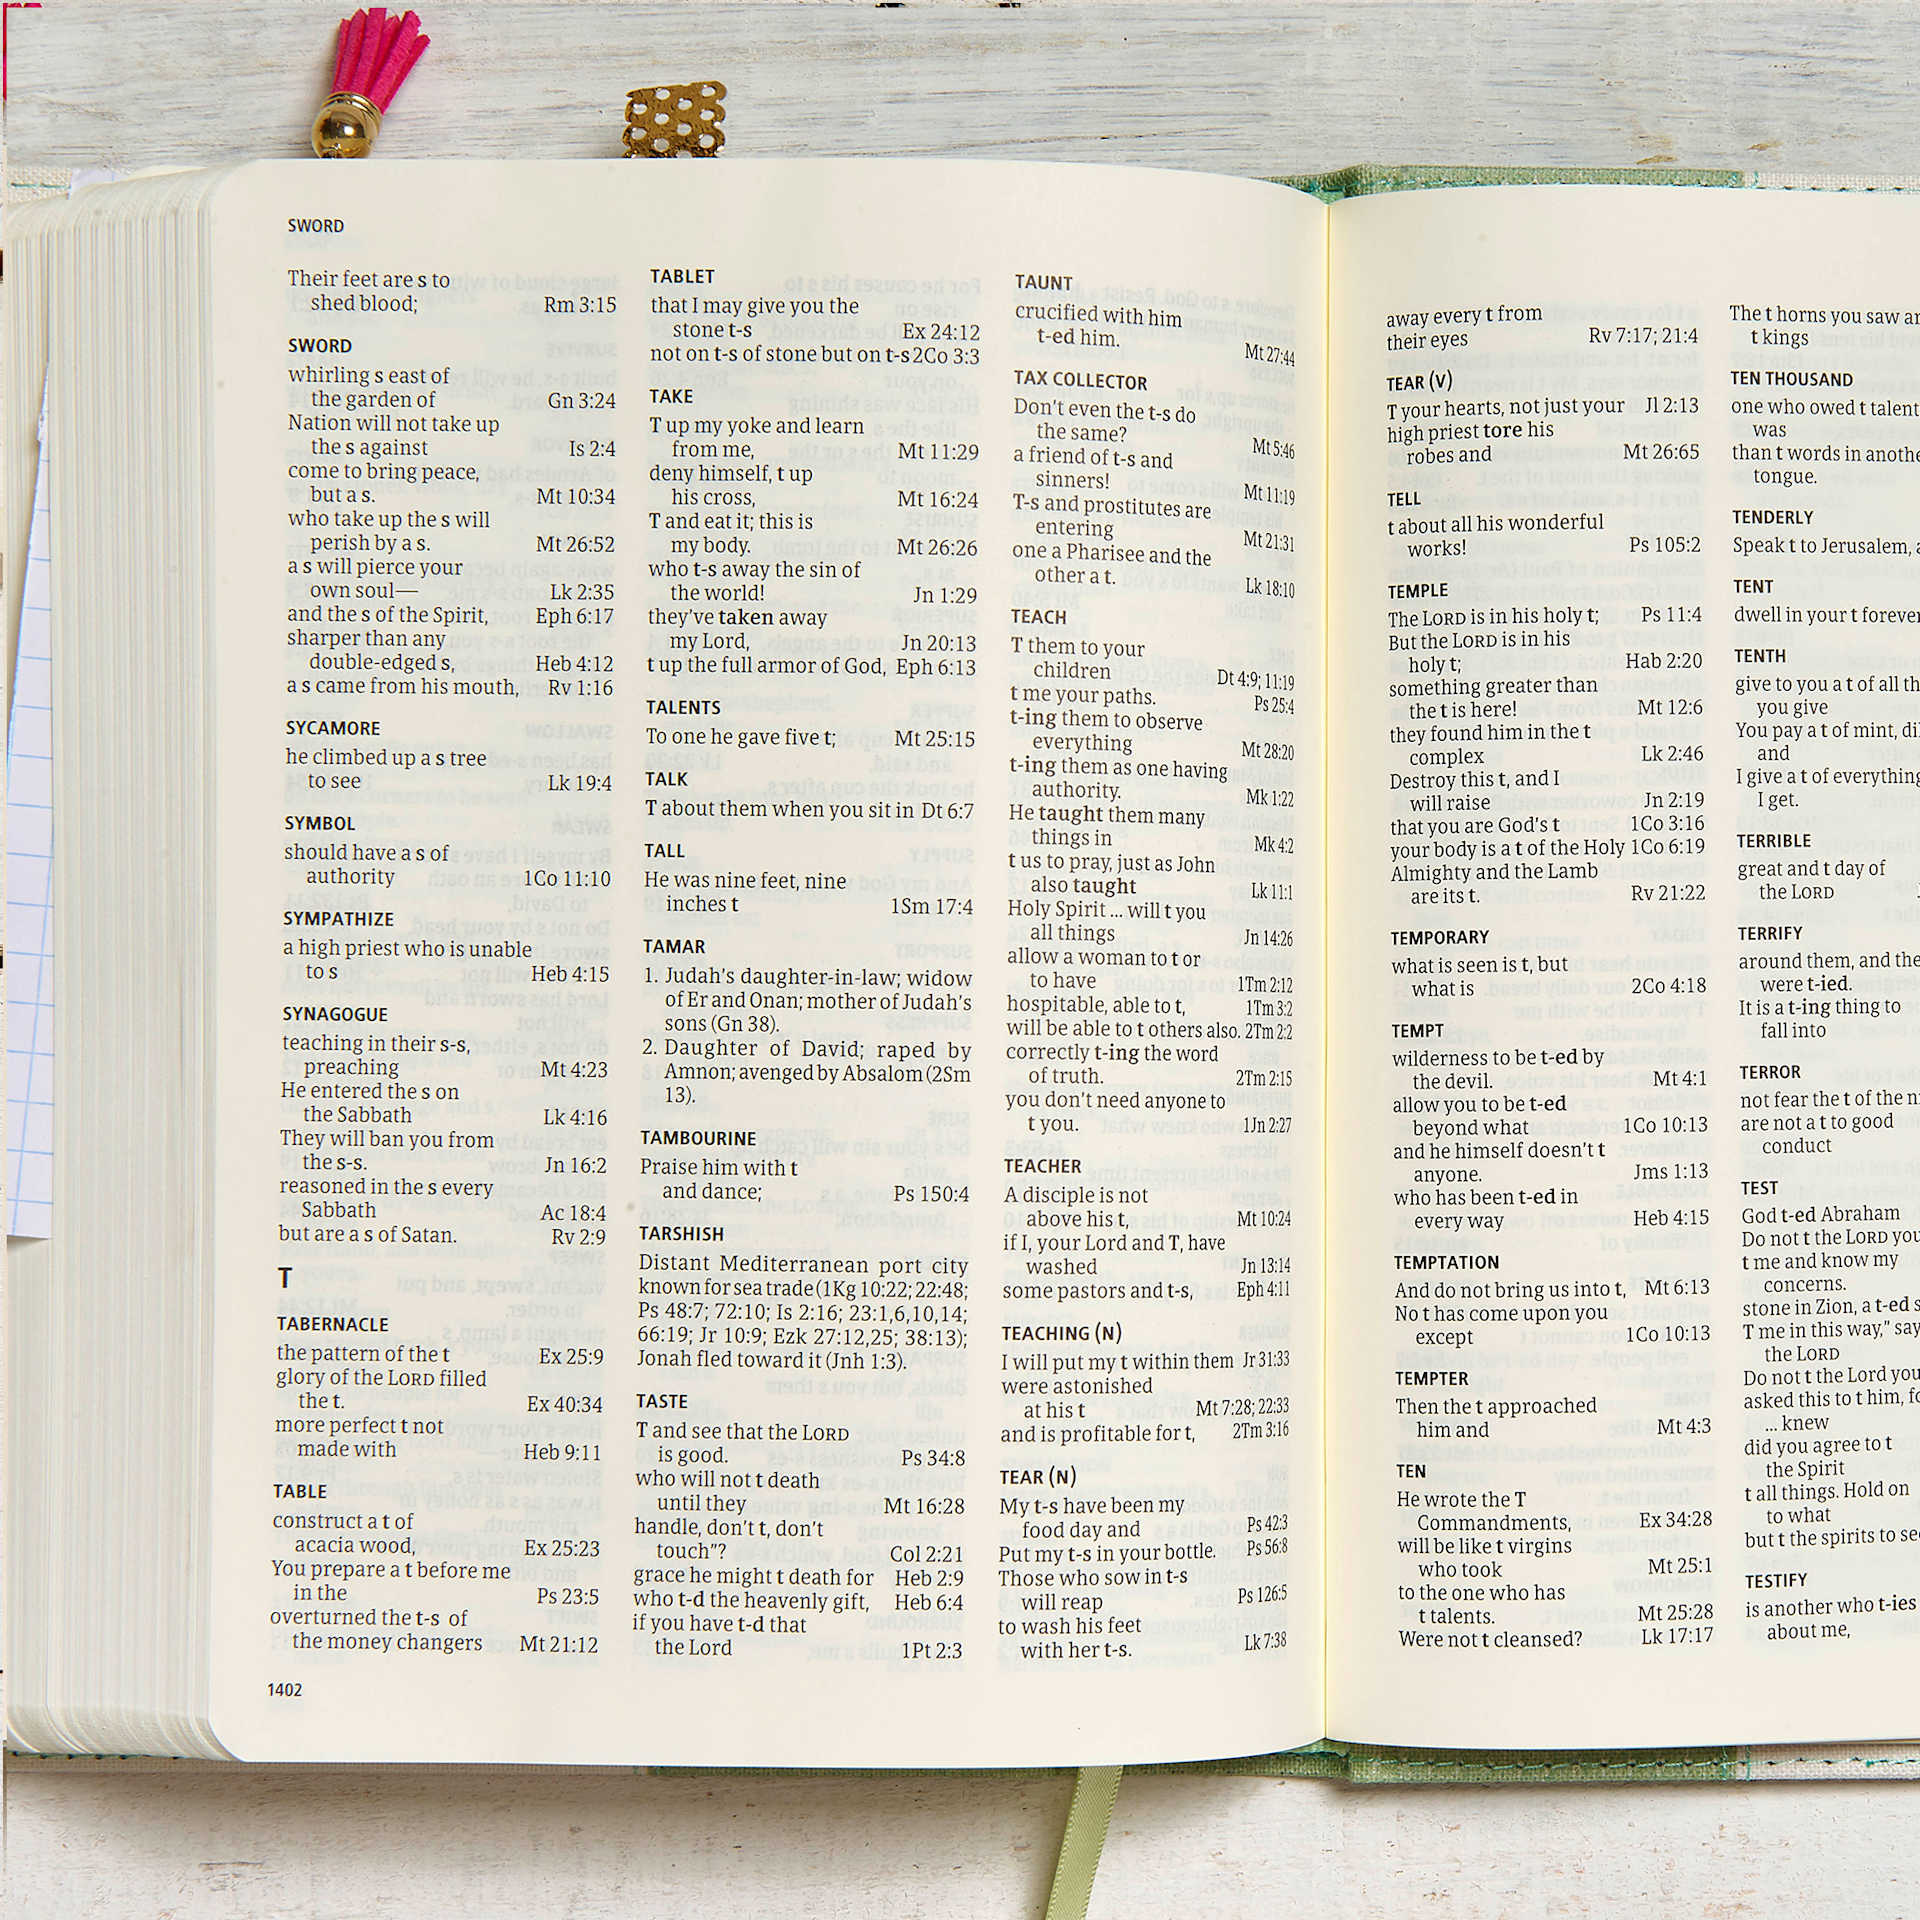 SWORD
Their feet are s to
shed blood; Rm 3:15
SWORD
whirling s east of
the garden of Gn 3:24
Nation will not take up
the s against Is 2:4
come to bring peace,
but a s. Mt 10:34
who take up the s will
perish by a s. Mt 26:52
a s will pierce your
own soul— Lk 2:35
and the s of the Spirit, Eph 6:17
sharper than any
double-edged s, Heb 4:12
a s came from his mouth, Rv 1:16
SYCAMORE
he climbed up a s tree
to see Lk 19:4
SYMBOL
should have a s of
authority 1Co 11:10
SYMPATHIZE
a high priest who is unable
to s Heb 4:15
SYNAGOGUE
teaching in their s-s,
preaching Mt 4:23
He entered the s on
the Sabbath Lk 4:16
They will ban you from
the s-s. Jn 16:2
reasoned in the s every
Sabbath Ac 18:4
but are a s of Satan. Rv 2:9
T
TABERNACLE
the pattern of the t Ex 25:9
glory of the LORD filled
the t. Ex 40:34
more perfect t not
made with Heb 9:11
TABLE
construct a t of
acacia wood, Ex 25:23
You prepare a t before me
in the Ps 23:5
overturned the t-s of
the money changers Mt 21:12
1402
TABLET
that I may give you the
stone t-s Ex 24:12
not on t-s of stone but on t-s 2Co 3:3
TAKE
T up my yoke and learn
from me, Mt 11:29
deny himself, t up
his cross, Mt 16:24
T and eat it; this is
my body. Mt 26:26
who t-s away the sin of
the world! Jn 1:29
they've taken away
my Lord, Jn 20:13
t up the full armor of God, Eph 6:13
TALENTS
To one he gave five t; Mt 25:15
TALK
T about them when you sit in Dt 6:7
TALL
He was nine feet, nine
inches t 1Sm 17:4
TAMAR
1. Judah's daughter-in-law; widow
of Er and Onan; mother of Judah's
sons (Gn 38).
2. Daughter of David; raped by
Amnon; avenged by Absalom (2Sm
13).
TAMBOURINE
Praise him with t
and dance; Ps 150:4
TARSHISH
Distant Mediterranean port city
known for sea trade (1Kg 10:22; 22:48;
Ps 48:7; 72:10; Is 2:16; 23:1,6,10,14;
66:19; Jr 10:9; Ezk 27:12,25; 38:13);
Jonah fled toward it (Jnh 1:3).
TASTE
T and see that the LORD
is good. Ps 34:8
who will not t death
until they Mt 16:28
handle, don't t, don't
touch"? Col 2:21
grace he might t death for Heb 2:9
who t-d the heavenly gift, Heb 6:4
if you have t-d that
the Lord 1Pt 2:3
TAUNT
crucified with him
t-ed him. Mt 27:44
TAX COLLECTOR
Don't even the t-s do
the same? Mt 5:46
a friend of t-s and
sinners! Mt 11:19
T-s and prostitutes are
entering Mt 21:31
one a Pharisee and the
other a t. Lk 18:10
TEACH
T them to your
children Dt 4:9; 11:19
t me your paths. Ps 25:4
t-ing them to observe
everything Mt 28:20
t-ing them as one having
authority. Mk 1:22
He taught them many
things in Mk 4:2
t us to pray, just as John
also taught Lk 11:1
Holy Spirit ... will t you
all things Jn 14:26
allow a woman to t or
to have 1Tm 2:12
hospitable, able to t, 1Tm 3:2
will be able to t others also. 2Tm 2:2
correctly t-ing the word
of truth. 2Tm 2:15
you don't need anyone to
t you. 1Jn 2:27
TEACHER
A disciple is not
above his t, Mt 10:24
if I, your Lord and T, have
washed Jn 13:14
some pastors and t-s, Eph 4:11
TEACHING (N)
I will put my t within them Jr 31:33
were astonished
at his t Mt 7:28; 22:33
and is profitable for t, 2Tm 3:16
TEAR (N)
My t-s have been my
food day and Ps 42:3
Put my t-s in your bottle. Ps 56:8
Those who sow in t-s
will reap Ps 126:5
to wash his feet
with her t-s. Lk 7:38
away every t from
their eyes Rv 7:17; 21:4
TEAR (V)
T your hearts, not just your Jl 2:13
high priest tore his
robes and Mt 26:65
TELL
t about all his wonderful
works! Ps 105:2
TEMPLE
The LORD is in his holy t; Ps 11:4
But the LORD is in his
holy t; Hab 2:20
something greater than
the t is here! Mt 12:6
they found him in the t
complex Lk 2:46
Destroy this t, and I
will raise Jn 2:19
that you are God's t 1Co 3:16
your body is a t of the Holy 1Co 6:19
Almighty and the Lamb
are its t. Rv 21:22
TEMPORARY
what is seen is t, but
what is 2Co 4:18
TEMPT
wilderness to be t-ed by
the devil. Mt 4:1
allow you to be t-ed
beyond what 1Co 10:13
and he himself doesn't t
anyone. Jms 1:13
who has been t-ed in
every way Heb 4:15
TEMPTATION
And do not bring us into t, Mt 6:13
No t has come upon you
except 1Co 10:13
TEMPTER
Then the t approached
him and Mt 4:3
TEN
He wrote the T
Commandments, Ex 34:28
will be like t virgins
who took Mt 25:1
to the one who has
t talents. Mt 25:28
Were not t cleansed? Lk 17:17
The t horns you saw
t kings
TEN THOUSAND
one who owed t talent
was
than t words in
tongue.
TENDERLY
Speak t to Jerusalem,
TENT
dwell in your t forever
TENTH
give to you a t of all
you give
You pay a t of mint,
and
I give a t of everything
I get.
TERRIBLE
great and t day of
the LORD
TERRIFY
around them, and the
were t-ied.
It is a t-ing thing to
fall into
TERROR
not fear the t of the
are not a t to good
conduct
TEST
God t-ed Abraham
Do not t the LORD you
t me and know my
concerns.
stone in Zion, a t-ed
T me in this way," say
the LORD
Do not t the Lord you
asked this to t him,
... knew
did you agree to t
the Spirit
t all things. Hold on
to what
but t the spirits to see
TESTIFY
is another who t-ies
about me,